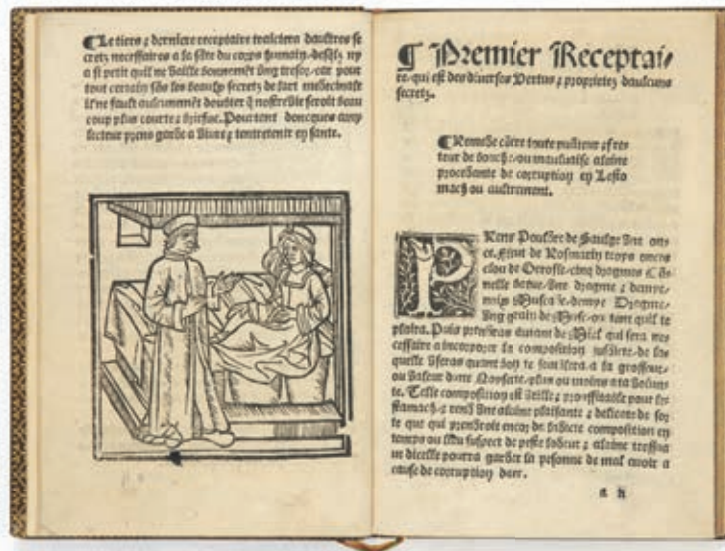 ¶Le tiers ⁊ derniere receptaire traictera daultres se
cretz necessaires a la sãte du corps humain desq̃lz ny
a si petit quil ne vaille bonnemẽt ung tresor car pour
tout certain sãs les beaulx secretz de lart medicinale
il ne fault aulcunemẽt doubter q̃ nostre vie seroit beau
coup plus courte ⁊ briefue. Pourtant doncques amy
lecteur prens garde a vivre ⁊ tentretenir en sante.
¶ Premier Receptai⸗
re, qui est des diverses vertus ⁊ proprietez daulcuns
secretz.
¶Remede cõtre toute puãteur ⁊ fre
teur de bouche ou maulvaise alaine
procedante de corruption en Lesto
mach ou aultrement.
PRens Pouldre de Saulge une on
ce. Fleur de Rosmarin troys onces
clou de Gerofle cinq dragmes Cã
nelle batue une dragme ⁊ demye
noix Muscade demye Dragme
Ung grain de Musc ou tant quil te
plaira. Puis prendras autant de Miel qui sera ne
cessaire a incorporer la composition susdicte de la
quelle useras quant bon te semblera a la grosseur
ou valeur dune Noysette plus ou moins a ta volun
te. Telle composition est utile ⁊ prouffitable pour les
stomach ⁊ rend une alaine plaisante ⁊ delicate de sor
te que qui prendroit encor de ladicte composition en
temps ou lieu suspect de peste lodeur ⁊ alaine
dicelle pourra garder la persõne de mal avoir a
cause de corruption dair.
a ii